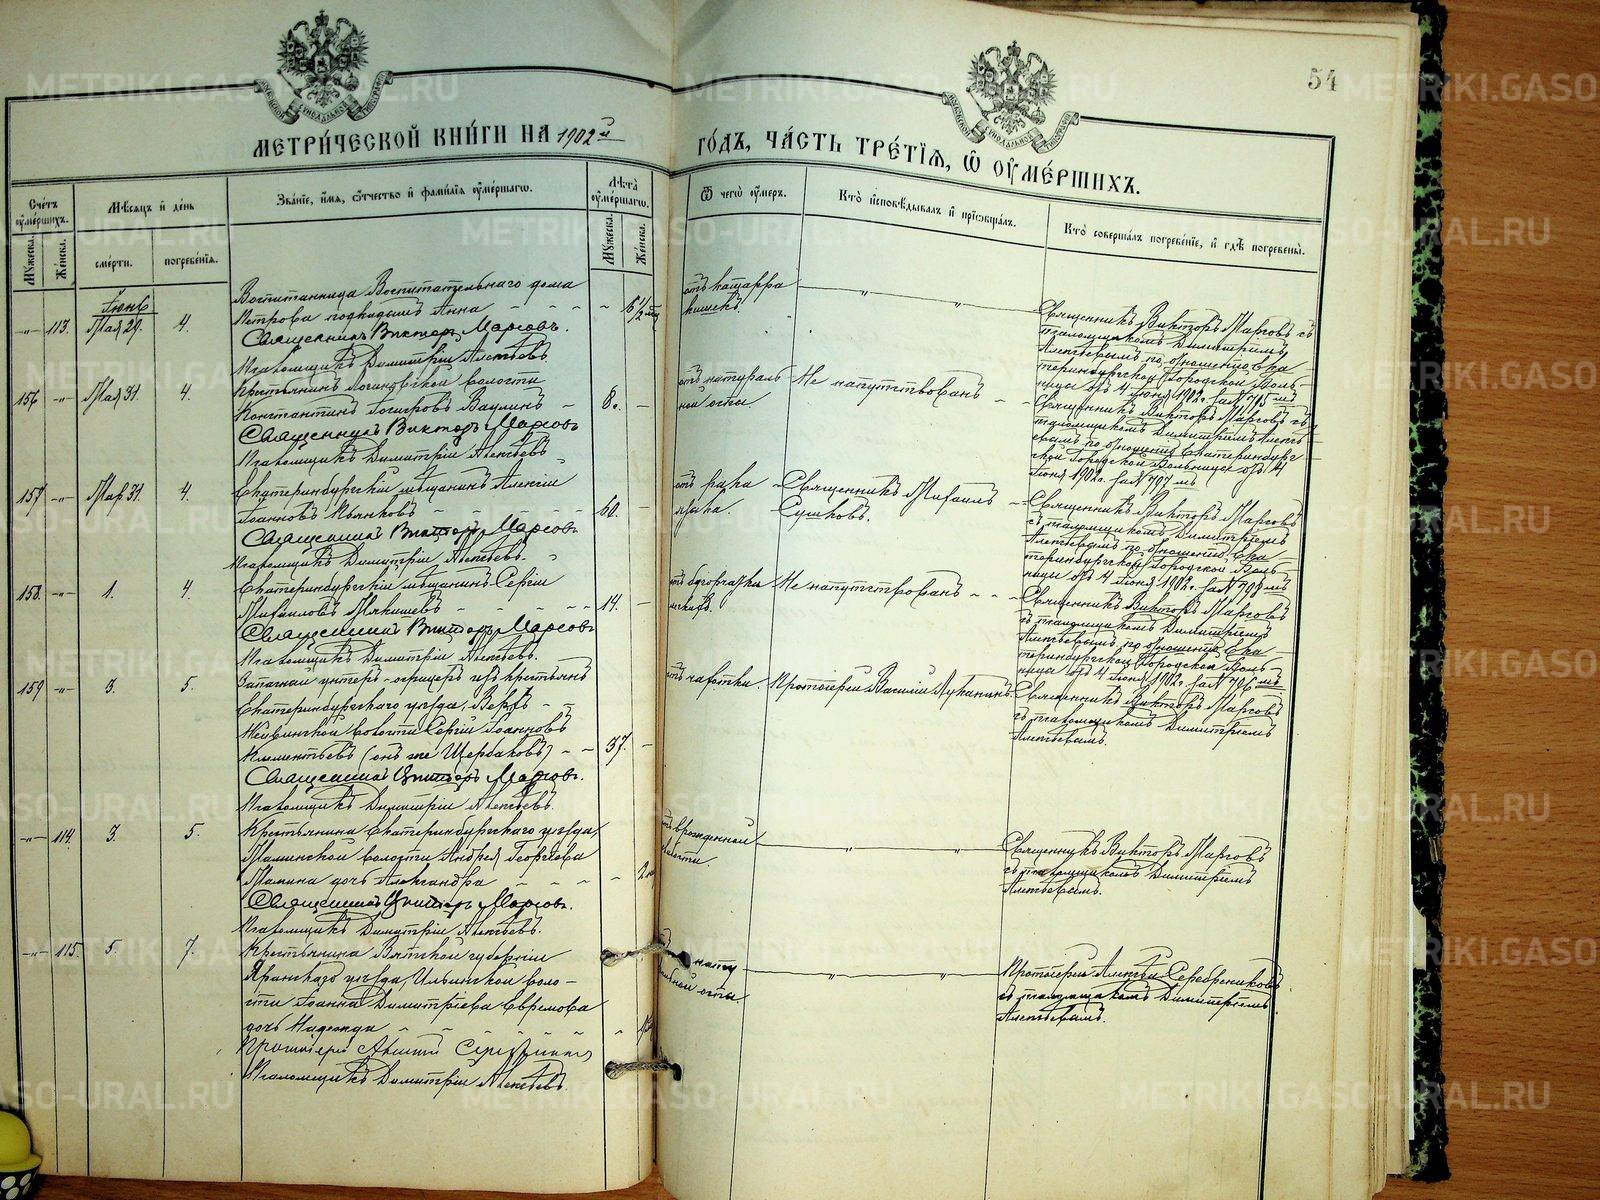 54
МЕТРИ́ЧЕСКОЙ КНИ́ГИ НА 1902й
ГО́ДЪ, ЧА́СТЬ ТРЕ́ТІѦ, Ѿ ОУМЕ́РШИХЪ.
Сче́тъ оуме́ршихъ.
Мѣсяцъ и день
Зва́ніе, и́мя, о́тчество и фами́лія оуме́ршагѡ.
Лѣта̀ оуме́ршагѡ.
Ѿ чегѡ̀ оу́меръ.
Кто̀ и҆сповѣ́дывалъ и҆ прїѡбща́лъ.
Кто̀ соверша́лъ погребе́нїе, и҆ гдѣ̀ погребены̀.
Мꙋ́жеска.
Же́нска.
сме́рти.
погребе́нїѧ.
Мꙋ́жеска.
Же́нска.
Іюнь
113.
Мая 29.
4.
Воспитанница Воспитательнаго дома
Петрова подкидышъ Анна
Священникъ Викторъ Марсовъ.
Псаломщикъ Димитрій Алексѣевъ
отъ катарра
кишекъ.
Священникъ Викторъ Марсовъ съ
псаломщикомъ Димитріемъ
Алексѣевымъ по отношенію Ека-
теринбургской Городской Боль-
ницы отъ 4 Іюня 1902 г. за № 795мъ
156
Мая 31.
4.
Крестьянинъ волости
Константинъ Ваулинъ
Священникъ Викторъ Марсовъ
Псаломщикъ Димитрій Алексѣевъ
8.
отъ натураль-
ной оспы.
Не напутствованъ
Священникъ Викторъ Марсовъ съ
псаломщикомъ Димитріемъ Алексѣ-
евымъ по отношенію Екатеринбург-
ской Городской Больницы отъ 4
Іюня 1902 г. за № 797мъ
157
Мая 31.
4.
Екатеринбургскій мѣщанинъ Алексій
Іоанновъ
Священникъ Викторъ Марсовъ.
Псаломщикъ Димитрій Алексѣевъ.
60.
отъ рака
языка.
Священникъ Михаилъ
Сушковъ.
Священникъ Викторъ Марсовъ
съ псаломщикомъ Димитріемъ
Алексѣевымъ по отношенію Ека-
теринбургской Городской Боль-
ницы отъ 4 Іюня 1902 г. за № 798мъ
158.
1.
4.
Екатеринбургскій мѣщанинъ Сергій
Михаиловъ Мякишевъ
Священникъ Викторъ Марсовъ
Псаломщикъ Димитрій Алексѣевъ.
14.
отъ бугорчатки
легкихъ.
Не напутствованъ
Священникъ Викторъ Марсовъ
съ псаломщикомъ Димитріемъ
Алексѣевымъ по отношенію Ека-
теринбургской Городской Боль-
ницы отъ 4 Іюня 1902 г. за № 796мъ
159
3.
5.
Запасный унтеръ-офицеръ изъ крестьянъ
Екатеринбургскаго уѣзда, Верхъ-
Нейвинской волости Сергій Іоанновъ
Климентьевъ (онъ же Щербаковъ)
Священникъ Викторъ Марсовъ.
Псаломщикъ Димитрій Алексѣевъ.
37.
отъ чахотки.
Протоіерей Василій Лубанинъ.
Священникъ Викторъ Марсовъ
съ псаломщикомъ Димитріемъ
Алексѣевымъ.
114.
3.
5.
Крестьянина Екатеринбургскаго уѣзда,
Маминской волости Андрея Георгіева
Мамина дочь Александра
Священникъ Викторъ Марсовъ.
Псаломщикъ Димитрій Алексѣевъ.
врожденной
слабости.
Священникъ Викторъ Марсовъ
съ псаломщикомъ Димитріемъ
Алексѣевымъ.
115.
5.
7.
Крестьянина Вятской губерніи
Яранскаго уѣзда, Ильинской воло-
сти Іоанна Димитріева Евремова
дочь Надежда
Протоіерей
Псаломщикъ Димитрій Алексѣевъ.
оспы
Протоіерей Алексій Серебренниковъ
съ псаломщикомъ Димитріемъ
Алексѣевымъ.
METRIKI.GASO-URAL.RU